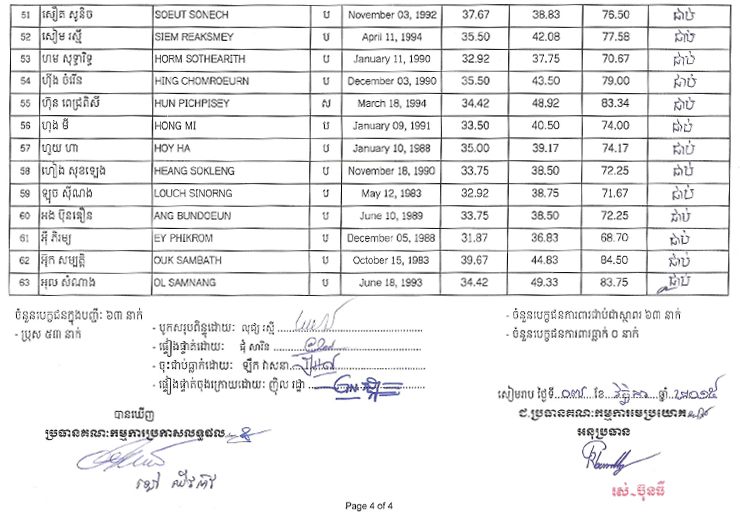 51 សឿត សូនិច SOEUT SONECH ប November 03, 1992 37.67 38.83 76.50 ជាប់
52 សៀម រស្មី SIEM REAKSMEY ប April 11, 1994 35.50 42.08 77.58 ជាប់
53 ហម សុទ្ធារិទ្ធ HORM SOTHEARITH ប January 11, 1990 32.92 37.75 70.67 ជាប់
54 ហ៊ីង ចំរើន HING CHOMROEURN ប December 03, 1990 35.50 43.50 79.00 ជាប់
55 ហ៊ុន ពេជ្រពិសី HUN PICHPISEY ស March 18, 1994 34.42 48.92 83.34 ជាប់
56 ហុង មី HONG MI ប January 09, 1991 33.50 40.50 74.00 ជាប់
57 ហូយ ហា HOY HA ប January 10, 1988 35.00 39.17 74.17 ជាប់
58 ហៀង សុខឡេង HEANG SOKLENG ប November 18, 1990 33.75 38.50 72.25 ជាប់
59 ឡូច ស៊ីណង LOUCH SINORNG ប May 12, 1983 32.92 38.75 71.67 ជាប់
60 អង ប៊ុនឌឿន ANG BUNDOEUN ប June 10, 1989 33.75 38.50 72.25 ជាប់
61 អ៊ី ភិរម្យ EY PHIKROM ប December 05, 1988 31.87 36.83 68.70 ជាប់
62 អ៊ុក សម្បត្តិ OUK SAMBATH ប October 15, 1983 39.67 44.83 84.50 ជាប់
63 អុល សំណាង OL SAMNANG ប June 18, 1993 34.42 49.33 83.75 ជាប់
ចំនួនបេក្ខជនក្នុងបញ្ជី: ៦៣ នាក់
- ប្រុស ៥៣ នាក់
- បូកសរុបពិន្ទុដោយ: លុជ្យ រស្មី
- ផ្ទៀងផ្ទាត់ដោយ: ជុំ សារិន
- ចុះជាប់ធ្លាក់ដោយ: ឡឹក វាសនា
- ផ្ទៀងផ្ទាត់ចុងក្រោយដោយ: ញ៉ិល រដ្ឋា
- ចំនួនបេក្ខជនការពារជាប់ជាស្ថាពរ ៦៣ នាក់
- ចំនួនបេក្ខជនការពារធ្លាក់ ០ នាក់
សៀមរាប ថ្ងៃទី ០៧ ខែ វិច្ឆិកា ឆ្នាំ ២០១៥
ជ.ប្រធានគណ:កម្មការមេប្រយោគ
អនុប្រធាន
រស់-ប៊ុនធី
បានឃើញ
ប្រធានគណ:កម្មការប្រកាសលទ្ធផល
Page 4 of 4